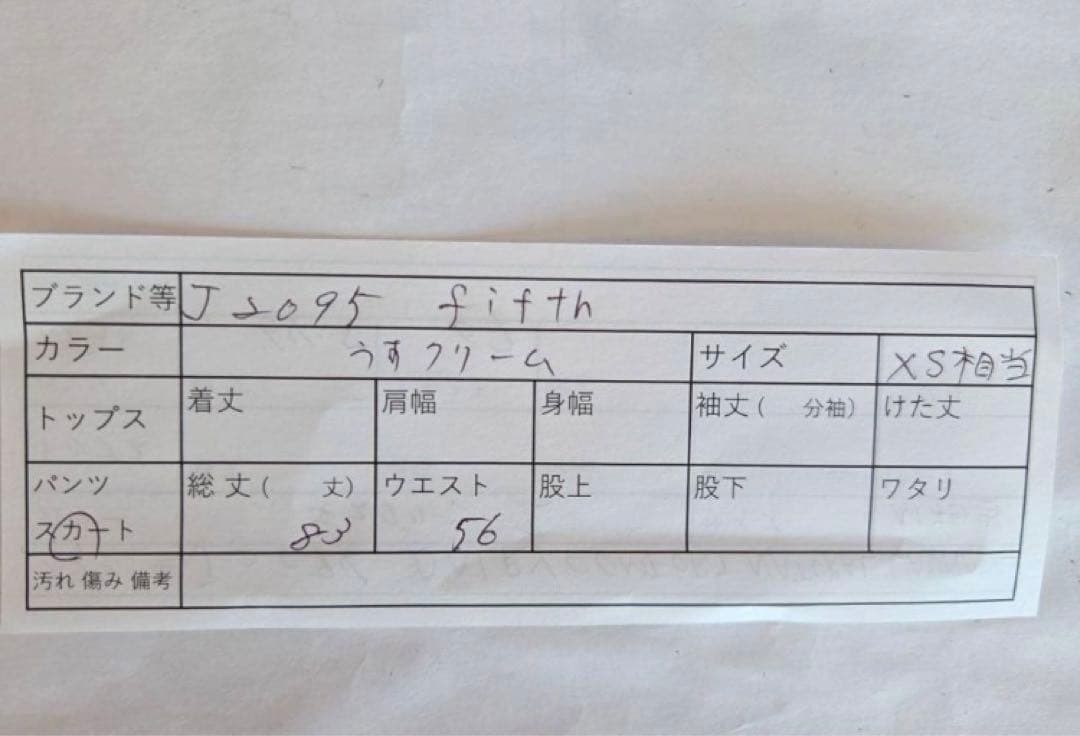 ブランド等 J2095 fifth
カラー うすクリーム サイズ XS相当
トップス 着丈 肩幅 身幅 袖丈( 分袖) けた丈
パンツ 総丈( 丈) ウエスト 股上 股下 ワタリ
スカート 83 56
汚れ 傷み 備考